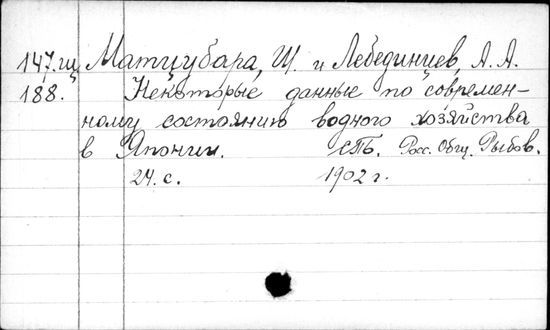 147.щ Матцубара, Щ. и Лебединцев, А. А.
188. Некоторые данные по современ-
ному состоянию водного хозяйства
в Японии. СПб. Росс. Общ. Рыбов.
24. с. 1902 г.